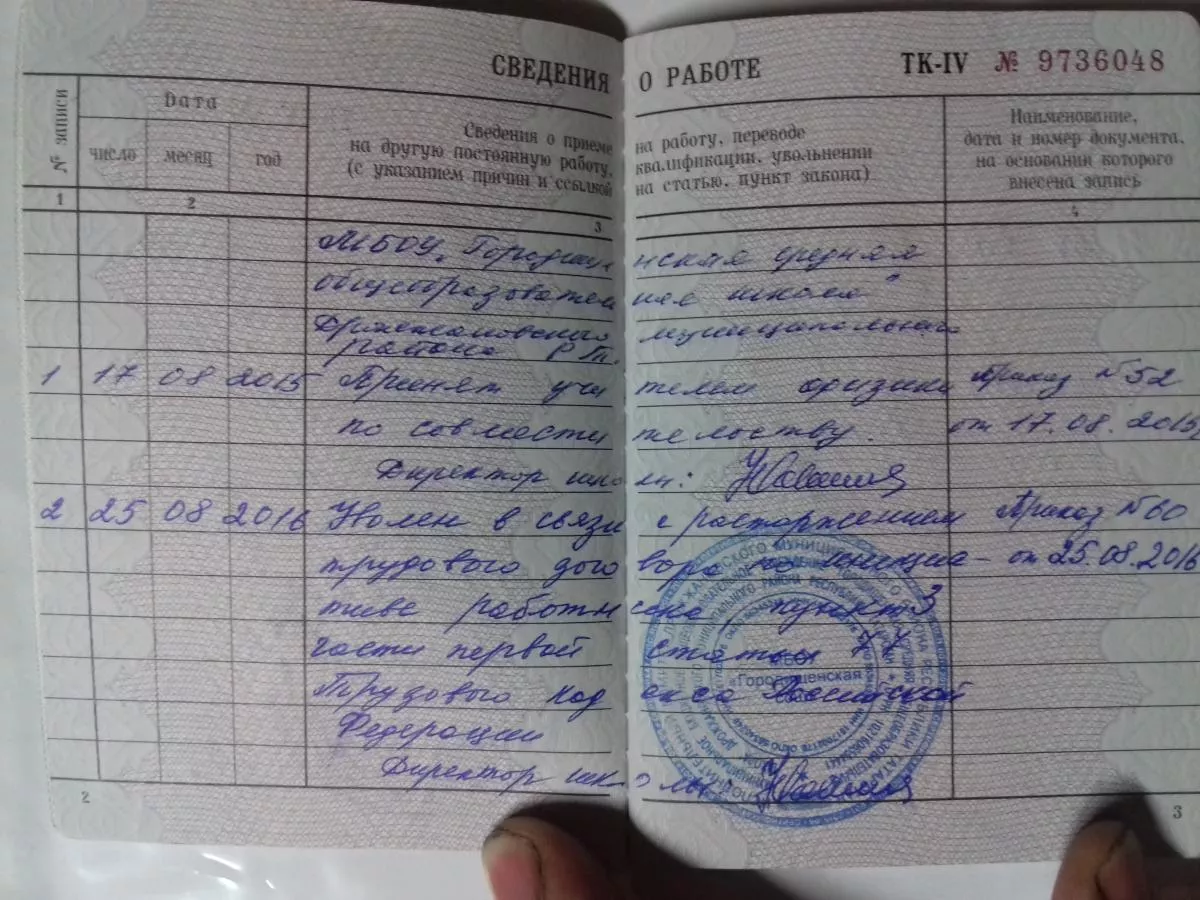 СВЕДЕНИЯ О РАБОТЕ ТК-IV № 9736048
№ записи
Дата
число месяц год
Сведения о приеме на работу, переводе
на другую постоянную работу, квалификации, увольнении
(с указанием причин и ссылкой на статью, пункт закона)
Наименование,
дата и номер документа,
на основании которого
внесена запись
1 2 3 4
МБОУ "Городищенская средняя
общеобразовательная школа"
Дрожжановского муниципального
района РТ.
1 17 08 2015 Принят учителем физики Приказ №52
по совместительству. от 17.08.2015
Директор школы:
2 25 08 2016 Уволен в связи с расторжением Приказ №60
трудового договора по инициа- от 25.08.2016
тиве работника пункт 3
части первой статьи 77
Трудового кодекса Российской
Федерации
Директор школы
Городищенская
2 3